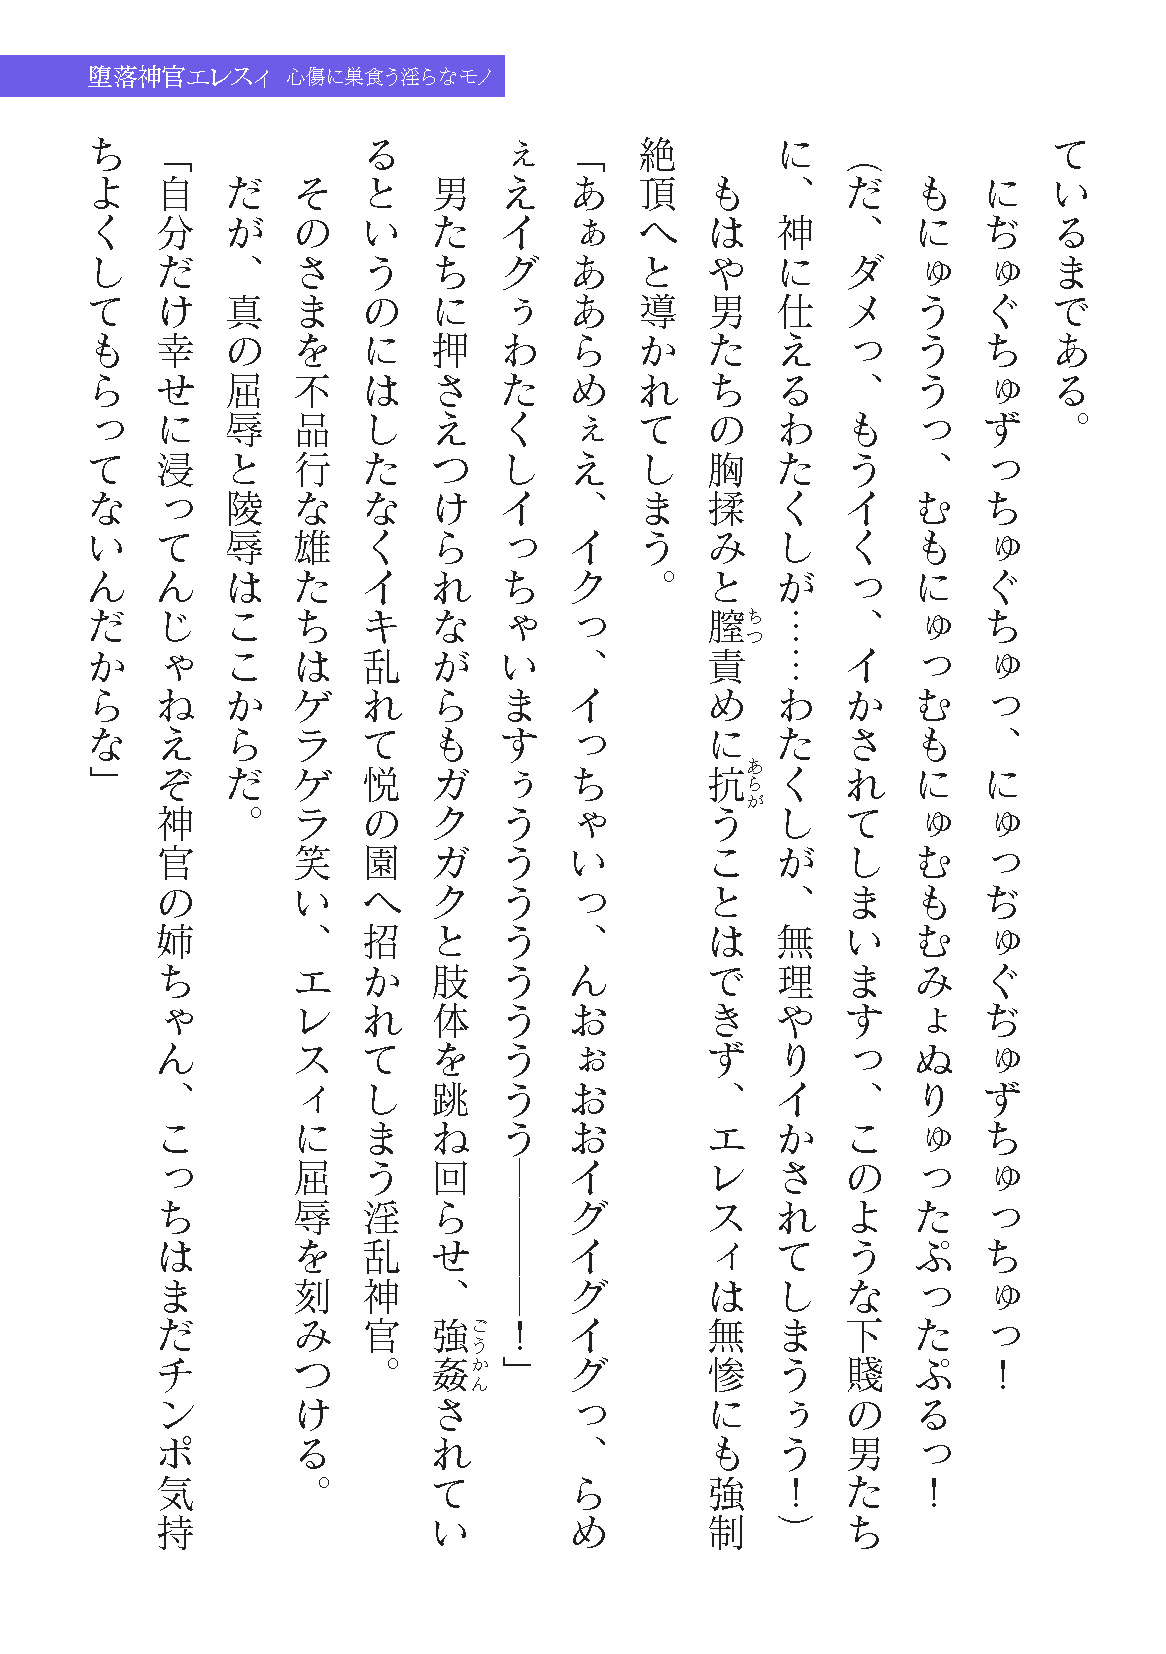 堕落神官エレスィ 心傷に巣食う淫らなモノ
ているまである。
　にぢゅぐちゅずっちゅぐちゅっ、にゅっぢゅぐぢゅずちゅっちゅっ！
　もにゅうううっ、むもにゅっむもにゅむもむみょぬりゅったぷったぷるっ！
（だ、ダメっ、もうイくっ、イかされてしまいますっ、このような下賤の男たち
に、神に仕えるわたくしが……わたくしが、無理やりイかされてしまうぅう！）
　もはや男たちの胸揉みと膣責めに抗うことはできず、エレスィは無惨にも強制
絶頂へと導かれてしまう。
「あぁああらめぇえ、イクっ、イっちゃいっ、んおぉおおイグイグイグっ、らめ
ぇえイグぅわたくしイっちゃいますぅううううううううう――――！」
　男たちに押さえつけられながらもガクガクと肢体を跳ね回らせ、強姦されてい
るというのにはしたなくイキ乱れて悦の園へ招かれてしまう淫乱神官。
　そのさまを不品行な雄たちはゲラゲラ笑い、エレスィに屈辱を刻みつける。
　だが、真の屈辱と陵辱はここからだ。
「自分だけ幸せに浸ってんじゃねえぞ神官の姉ちゃん、こっちはまだチンポ気持
ちよくしてもらってないんだからな」